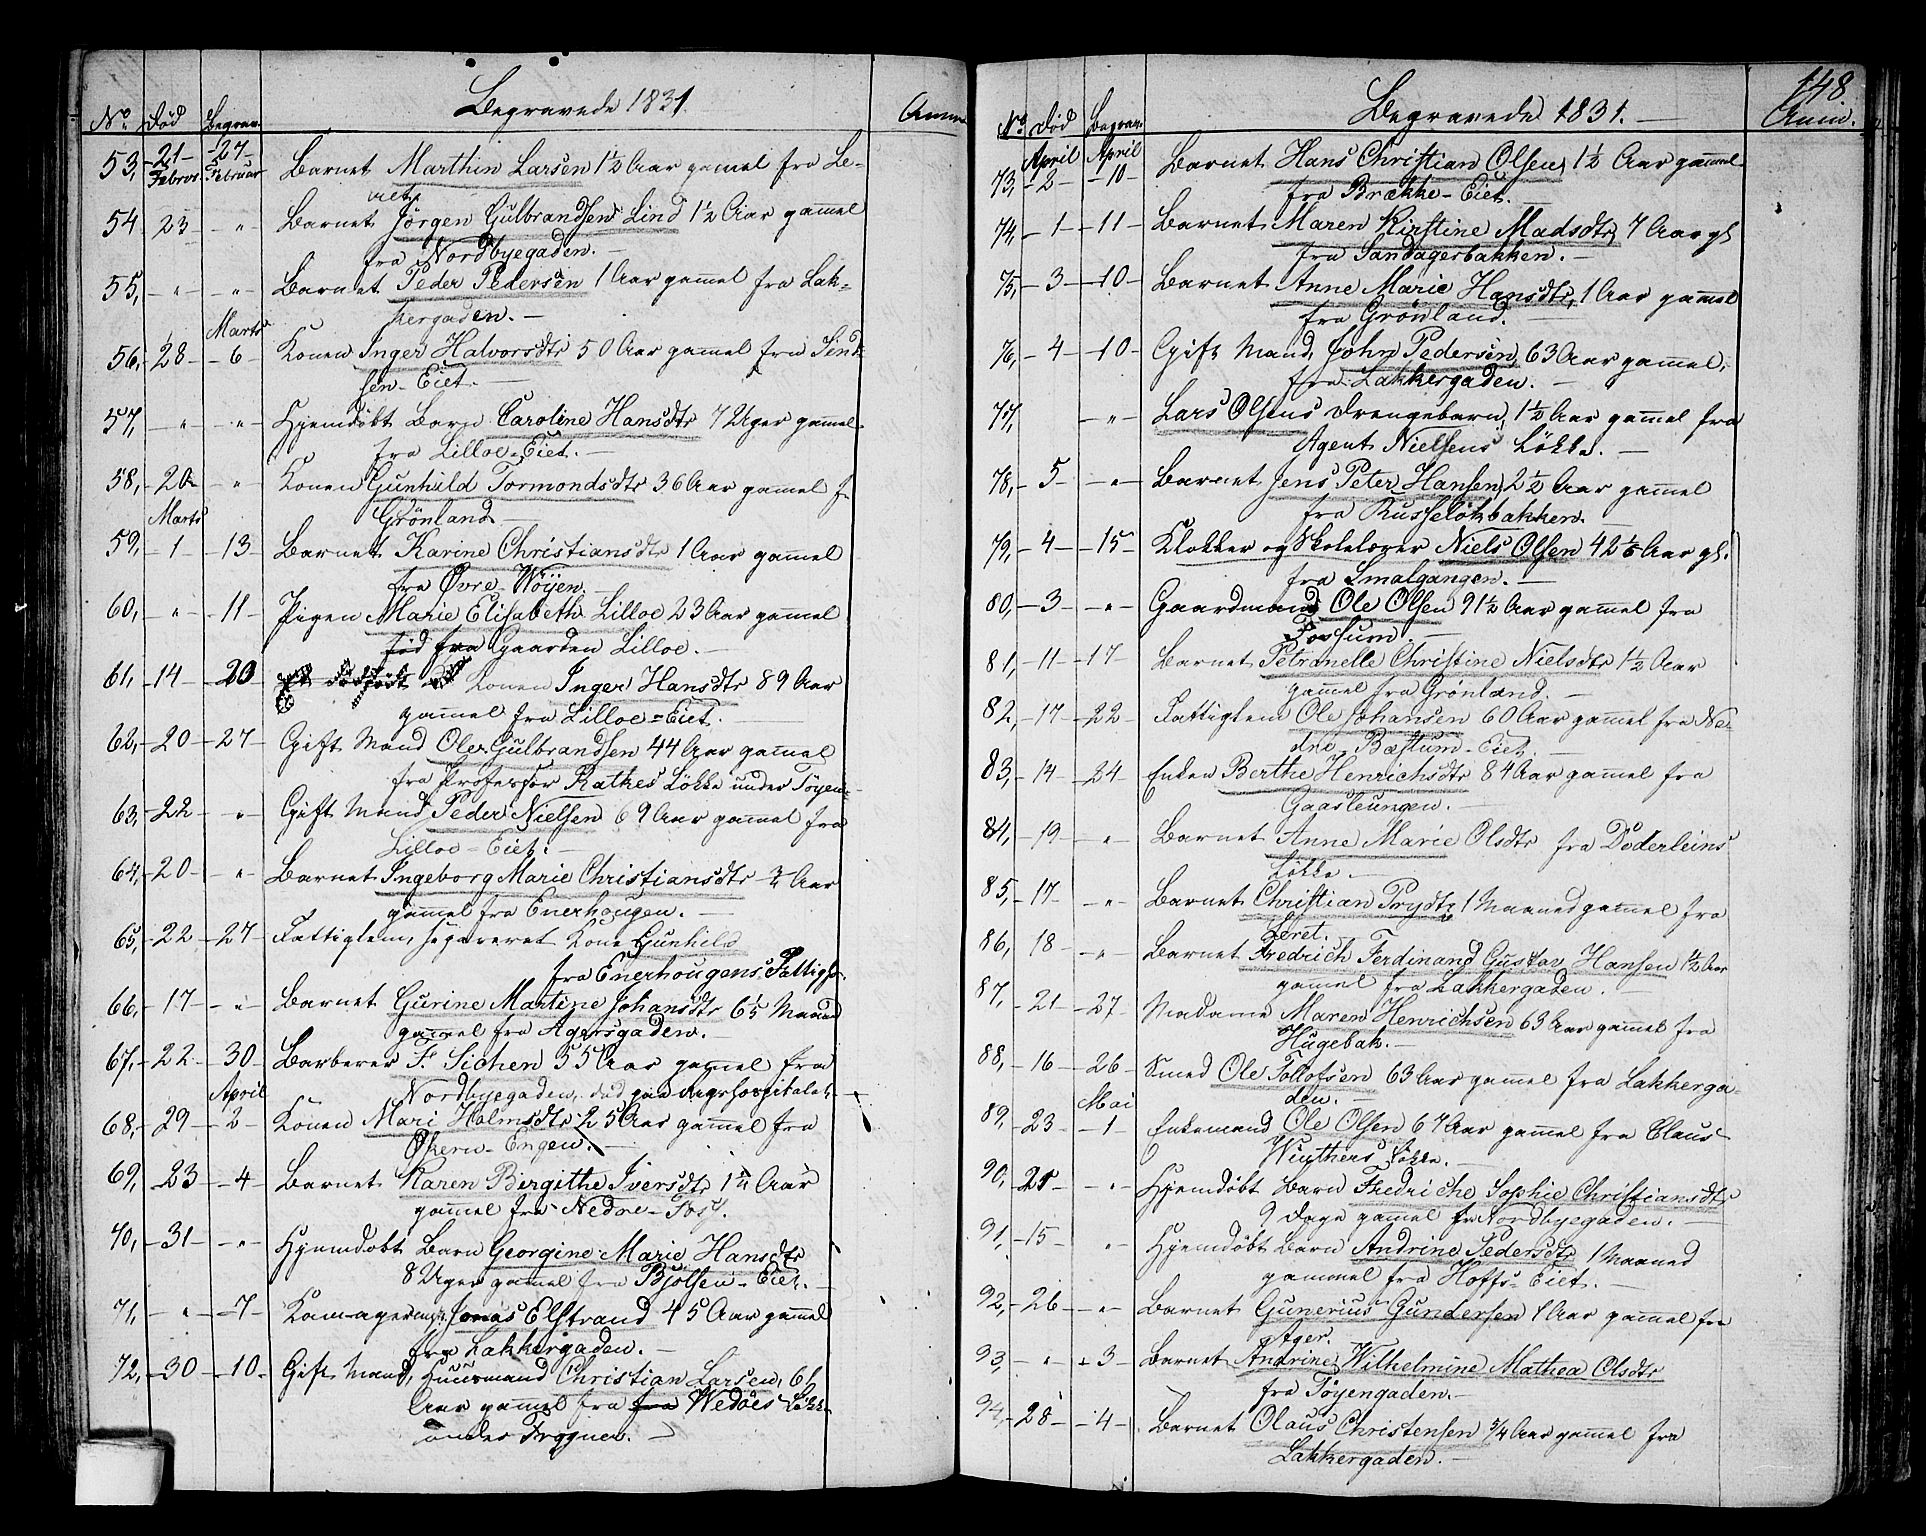 Begravede 1831.
No Død Begrav. Anm
53, 21 Februar 27 Februar Barnet Marthin Larsen 1½ Aar gamel fra Le-
ret.
54 23 " Barnet Jørgen Gulbrandsen Lind 1½ Aar gamel
fra Nordbyegaden.
55, " " Barnet Peder Pedersen 1 Aar gamel fra Lak-
kergaden.
Marts
56, 28 6 Konen Inger Halvorsdtr 50 Aar gamel fra
sen-Eiet.
57, " " Hjemdøbt Barn Caroline Hansdtr 7 Uger gamel
fra Lilloe-Eiet.
58, 20 " Konen Gunhild Tormondsdtr 36 Aar gamel f
Marts Grönland
59, 1 13 Barnet Karine Christiansdtr 1 Aar gamel
fra Øvre-Wøyen
60, " 11 Pigen Marie Elisabeth Lilloe 23 Aar gamel
fød fra Gaarden Lilloe.
61, 14 20 Konen Inger Hansdtr 89 Aar
gamel fra Lilloe-Eiet.
62, 20 27 Gift Mand Ole Gulbrandsen 44 Aar gamel
fra Professor Rathes Løkke under Töyen
63, 22 " Gift Mand Peder Nielsen 69 Aar gamel fra
Lilloe-Eiet.
64, 20 " Barnet Ingeborg Marie Christiansdtr ¾ Aar
gamel fra Enerhougen.
65, 22 27 Fattiglem, separeret Kone Gunhild
fra Enerhougens Fattigh.
66, 17 " Barnet Gurine Martine Johansdtr 6½ Maaned
gamel fra Agersgaden.
67, 22 30 Barberer F. Sichen 55 Aar gamel fra
April Nordbyegaden, død paa Rigshospitalet
68, 29 2 Konen Mari Holmsdtr 25 Aar gamel fra
Økern-Engen.
69, 23 4 Barnet Karen Birgithe Iversdtr 1 Aar
gamel fra Nedre-Foss.
70, 31 " Hjemdøbt Barn Georgine Marie Hansdtr
8 Uger gamel fra Bjølsen-Eiet.
71, " 7 Kamagermr. Jonas Elstrand 45 Aar gamel
fra Lakkergaden.
72, 30 10 Gift Mand, Huusmand Christian Larsen, 61
Aar gamel fra fra Wedøes Løkk
under Frogner.
148.
Begravede 1831.
No Død Begrav. Anm.
April April
73, 2 10 Barnet Hans Christian Olsen, 1½ Aar gammel
fra Brække-Eiet.
74, 1 11 Barnet Maren Kirstine Madsdtr 7 Aar gl
fra Sandagerbakken.
75, 3 10 Barnet Anne Marie Hansdtr, 1 Aar gamel
fra Grønland.
76, 4 10 Gift Mand, John Pedersen 63 Aar gamel,
fra Lakkergaden.
77, " Lars Olsens Drengebarn, 1½ Aar gamel fra
Agent Nielsens Løkke.
78, 5 " Barnet Jens Peter Hansen, 2½ Aar gamel
fra Russeløkbakken.
79, 4 15 Klokker og Skolelærer Niels Olsen 42 Aar gl.
fra Smalgangen.
80, 3 " Gaardmand Ole Olsen 91½ Aar gamel fra
Fossum.
81, 11 17 Barnet Petronelle Christine Nielsdtr 1½ Aar
gamel fra Grønland.
82, 17 22 Fattiglem Ole Johansen 60 Aar gamel fra Ne-
dre Bæstum-Eiet.
83, 14 24 Enken Berthe Henrichsdtr 84 Aar gamel fra
Gaasleungen.
84, 19 " Barnet Anne Marie Olsdtr fra Døderleins
Løkke.
85, 17 " Barnet Christian Prydtz 1 Maaned gamel fra
Leret.
86, 18 " Barnet Fredrich Ferdinand Gustav Hansen 1½ Aar
gamel fra Lakkergaden.
87, 21 27 Madame Maren Henrichsen 63 Aar gamel fra
Hugebak.
88, 16 26 Smed Ole Tollofsen 63 Aar gamel fra Lakkerga
Mai den.
89, 23 1 Enkemand Ole Olsen 67 Aar gamel fra Claus
Winthers Løkke.
90, 25 " Hjemdøbt Barn Fredriche Sophie Christiansdtr
9 Dage gamel fr Nordbyegaden.
91, 15 " Hjemdøbt Barn Andrine Pedersdtr 1 Maaned
gammel fra Hoffs-Eiet.
92, 26 " Barnet Gunerius Gundersen 1 Aar gamel fra
Ager.
93, " 3 Barnet Andrine Wilhelmine Mathea Olsdtr
fra Töyengaden.
94, 28 4 Barnet Olaus Christensen ¾ Aar gamel fra
Lakkergaden.